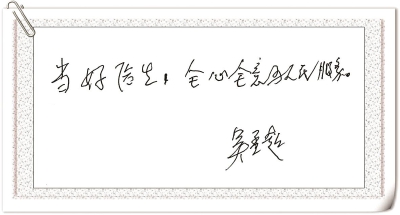 当好医生，全心全意为人民服务。
吴孟超